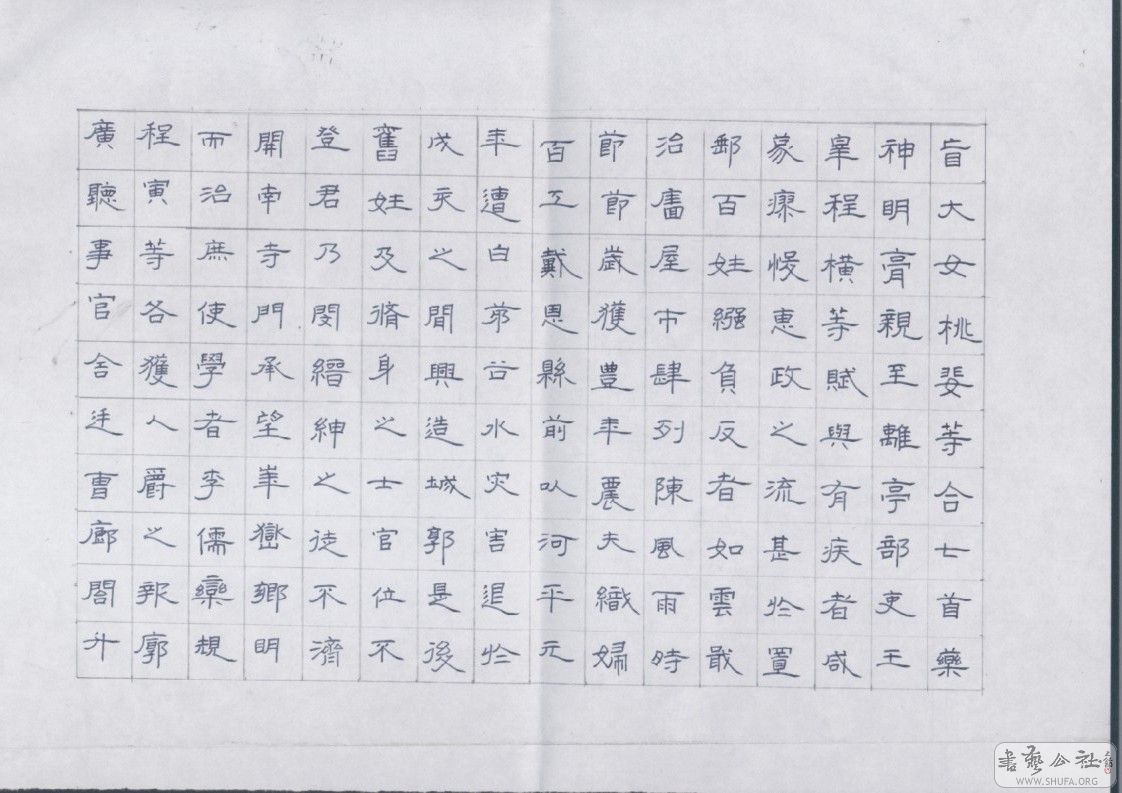 盲大女桃婓等合七首藥
神明膏親至離亭部吏王
皋程橫等賦與有疾者咸
蒙瘳悛惠政之流甚於置
郵百姓繈負反者如雲戢
治廧屋市肆列陳風雨時
節節歲獲豐年農夫織婦
百工戴恩縣前以河平元
年遭白茅谷水灾害退於
戌亥之間興造城郭是後
舊姓及脩身之士官位不
登君乃閔縉紳之徒不濟
開南寺門承望華嶽鄉明
而治庶使學者李儒欒規
程寅等各獲人爵之報廓
廣聽事官舍廷曹廊閣升
書藝公社
WWW.SHUFA.ORG